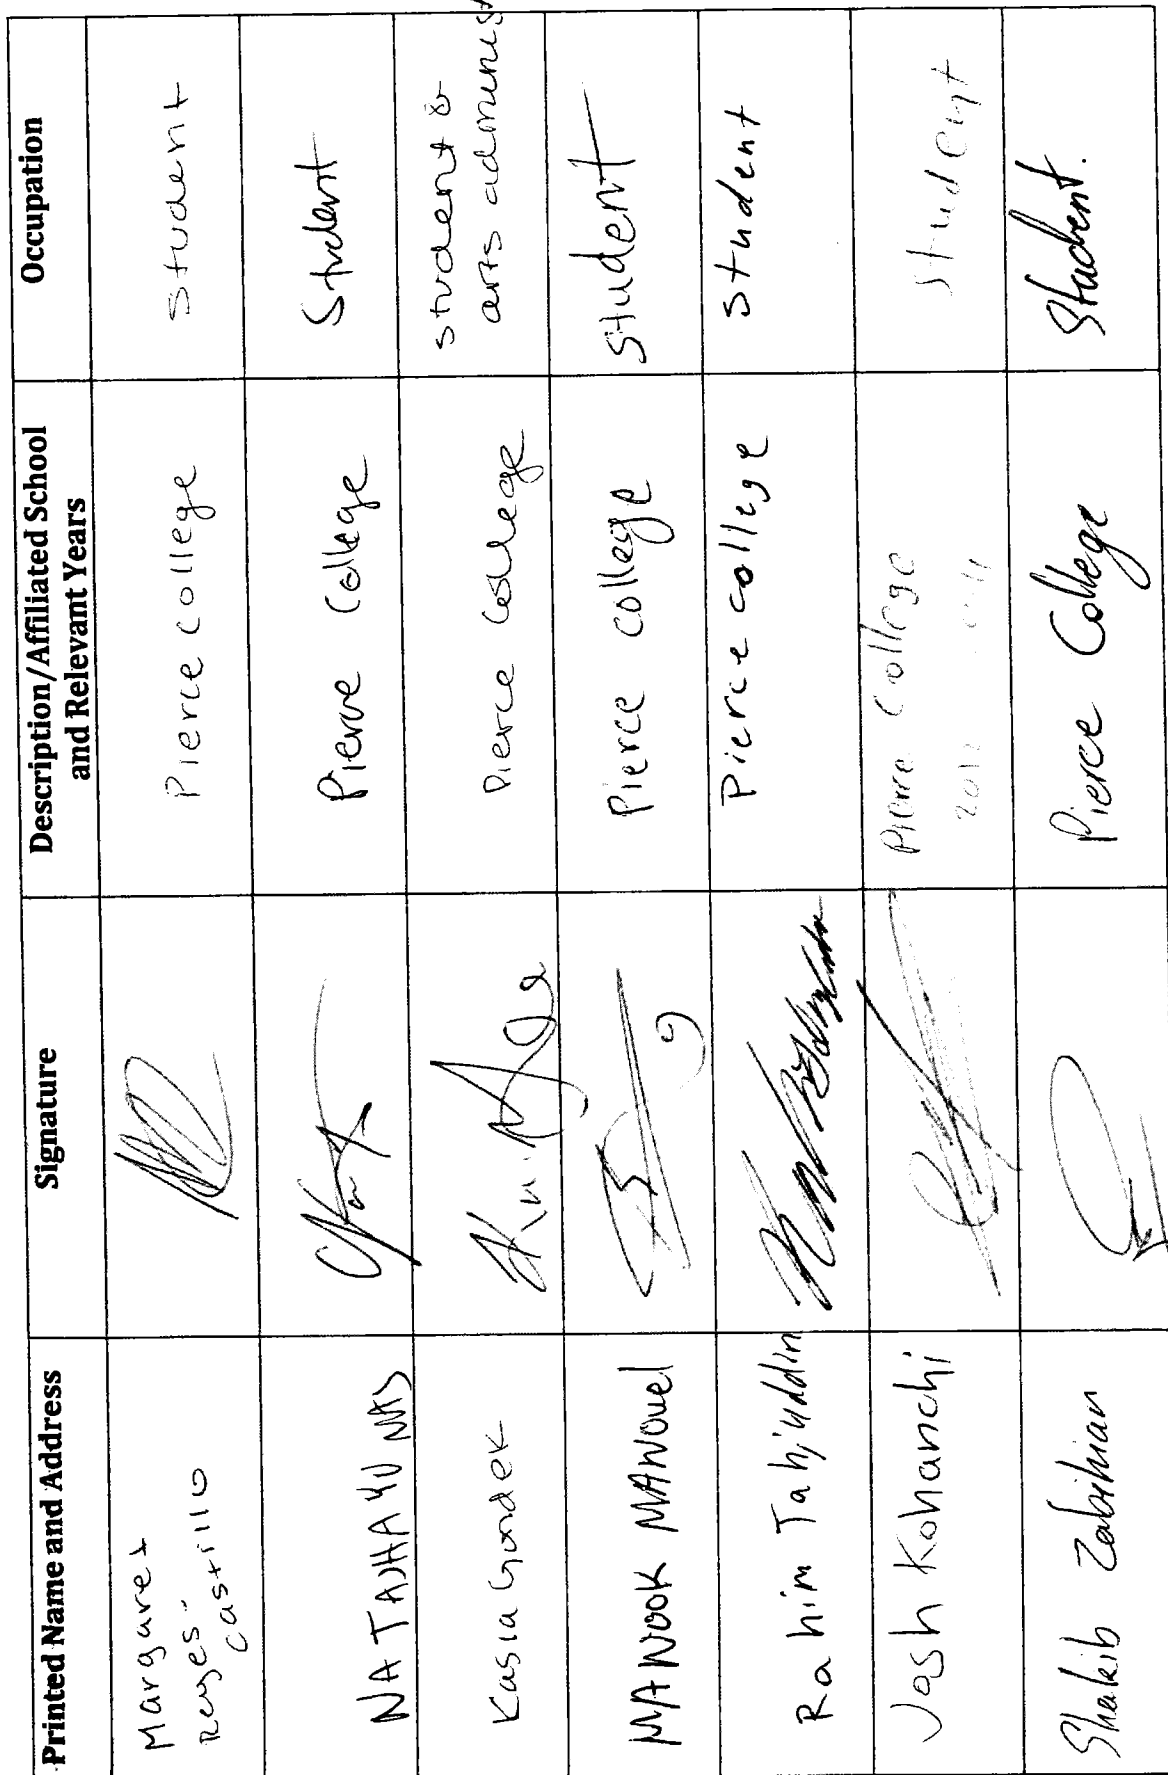 Printed Name and Address
Signature
Description/Affiliated School
and Relevant Years
Occupation
Margaret
Reyes-
Castillo
Pierce College
Student
Pierce College
Student
Kasia Gondek
Pierce College
student &
arts administ
MANOOK MANOUEL
Pierce college
student
Rahim Tahjuddin
Pierce college
student
Josh Kohanchi
Pierce College
student
Shakib Zabihian
Pierce College
Student.